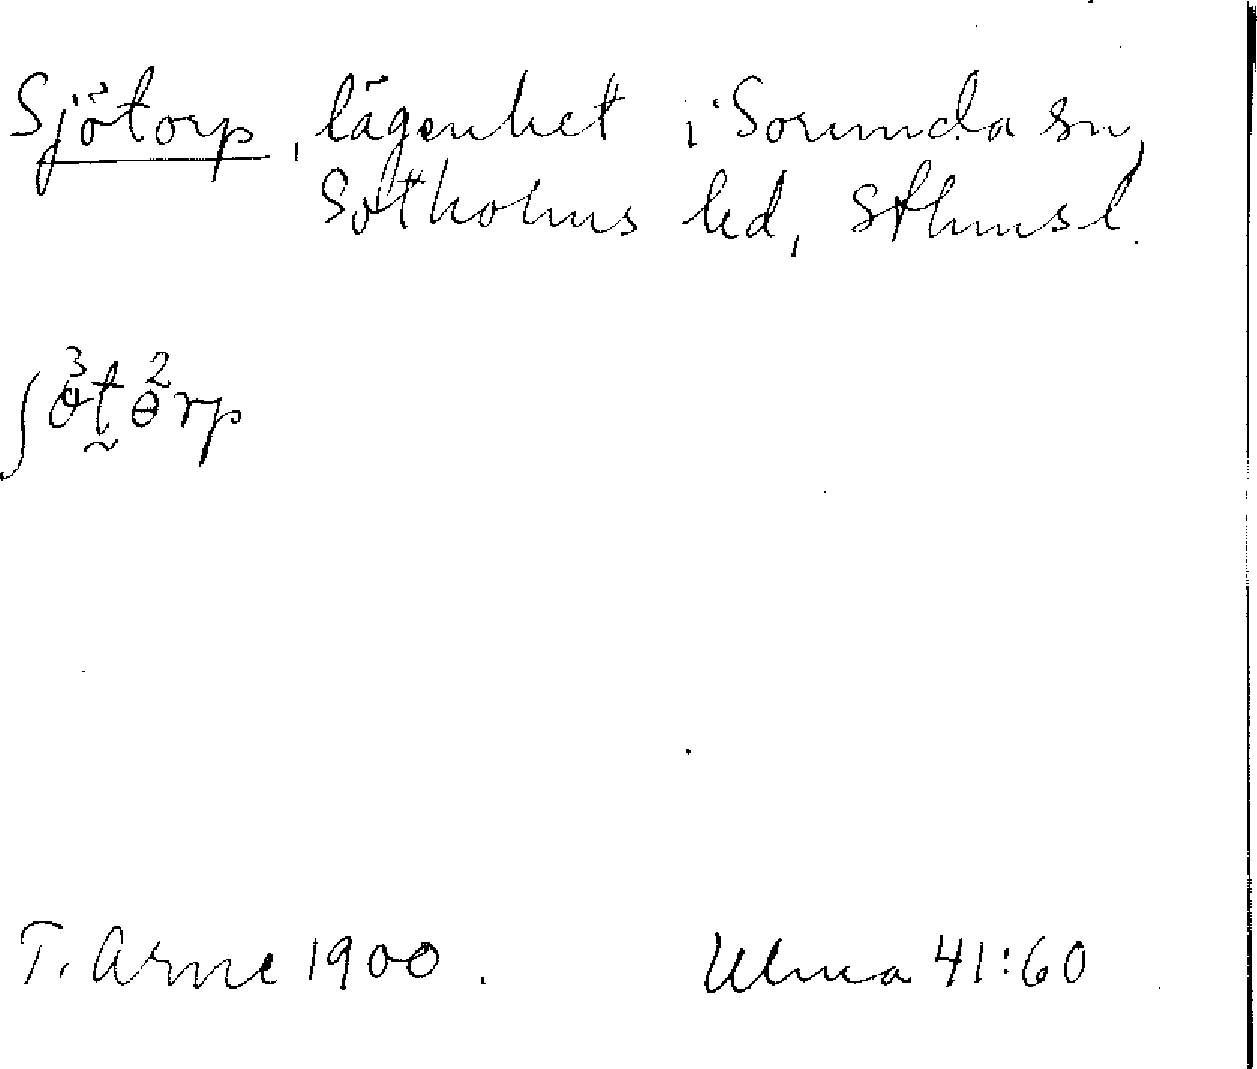 Sjötorp, lägenhet i Sorunda sn,
Sotholms hd, Sthmsl.
T. Arne 1900. Ulma 41:60